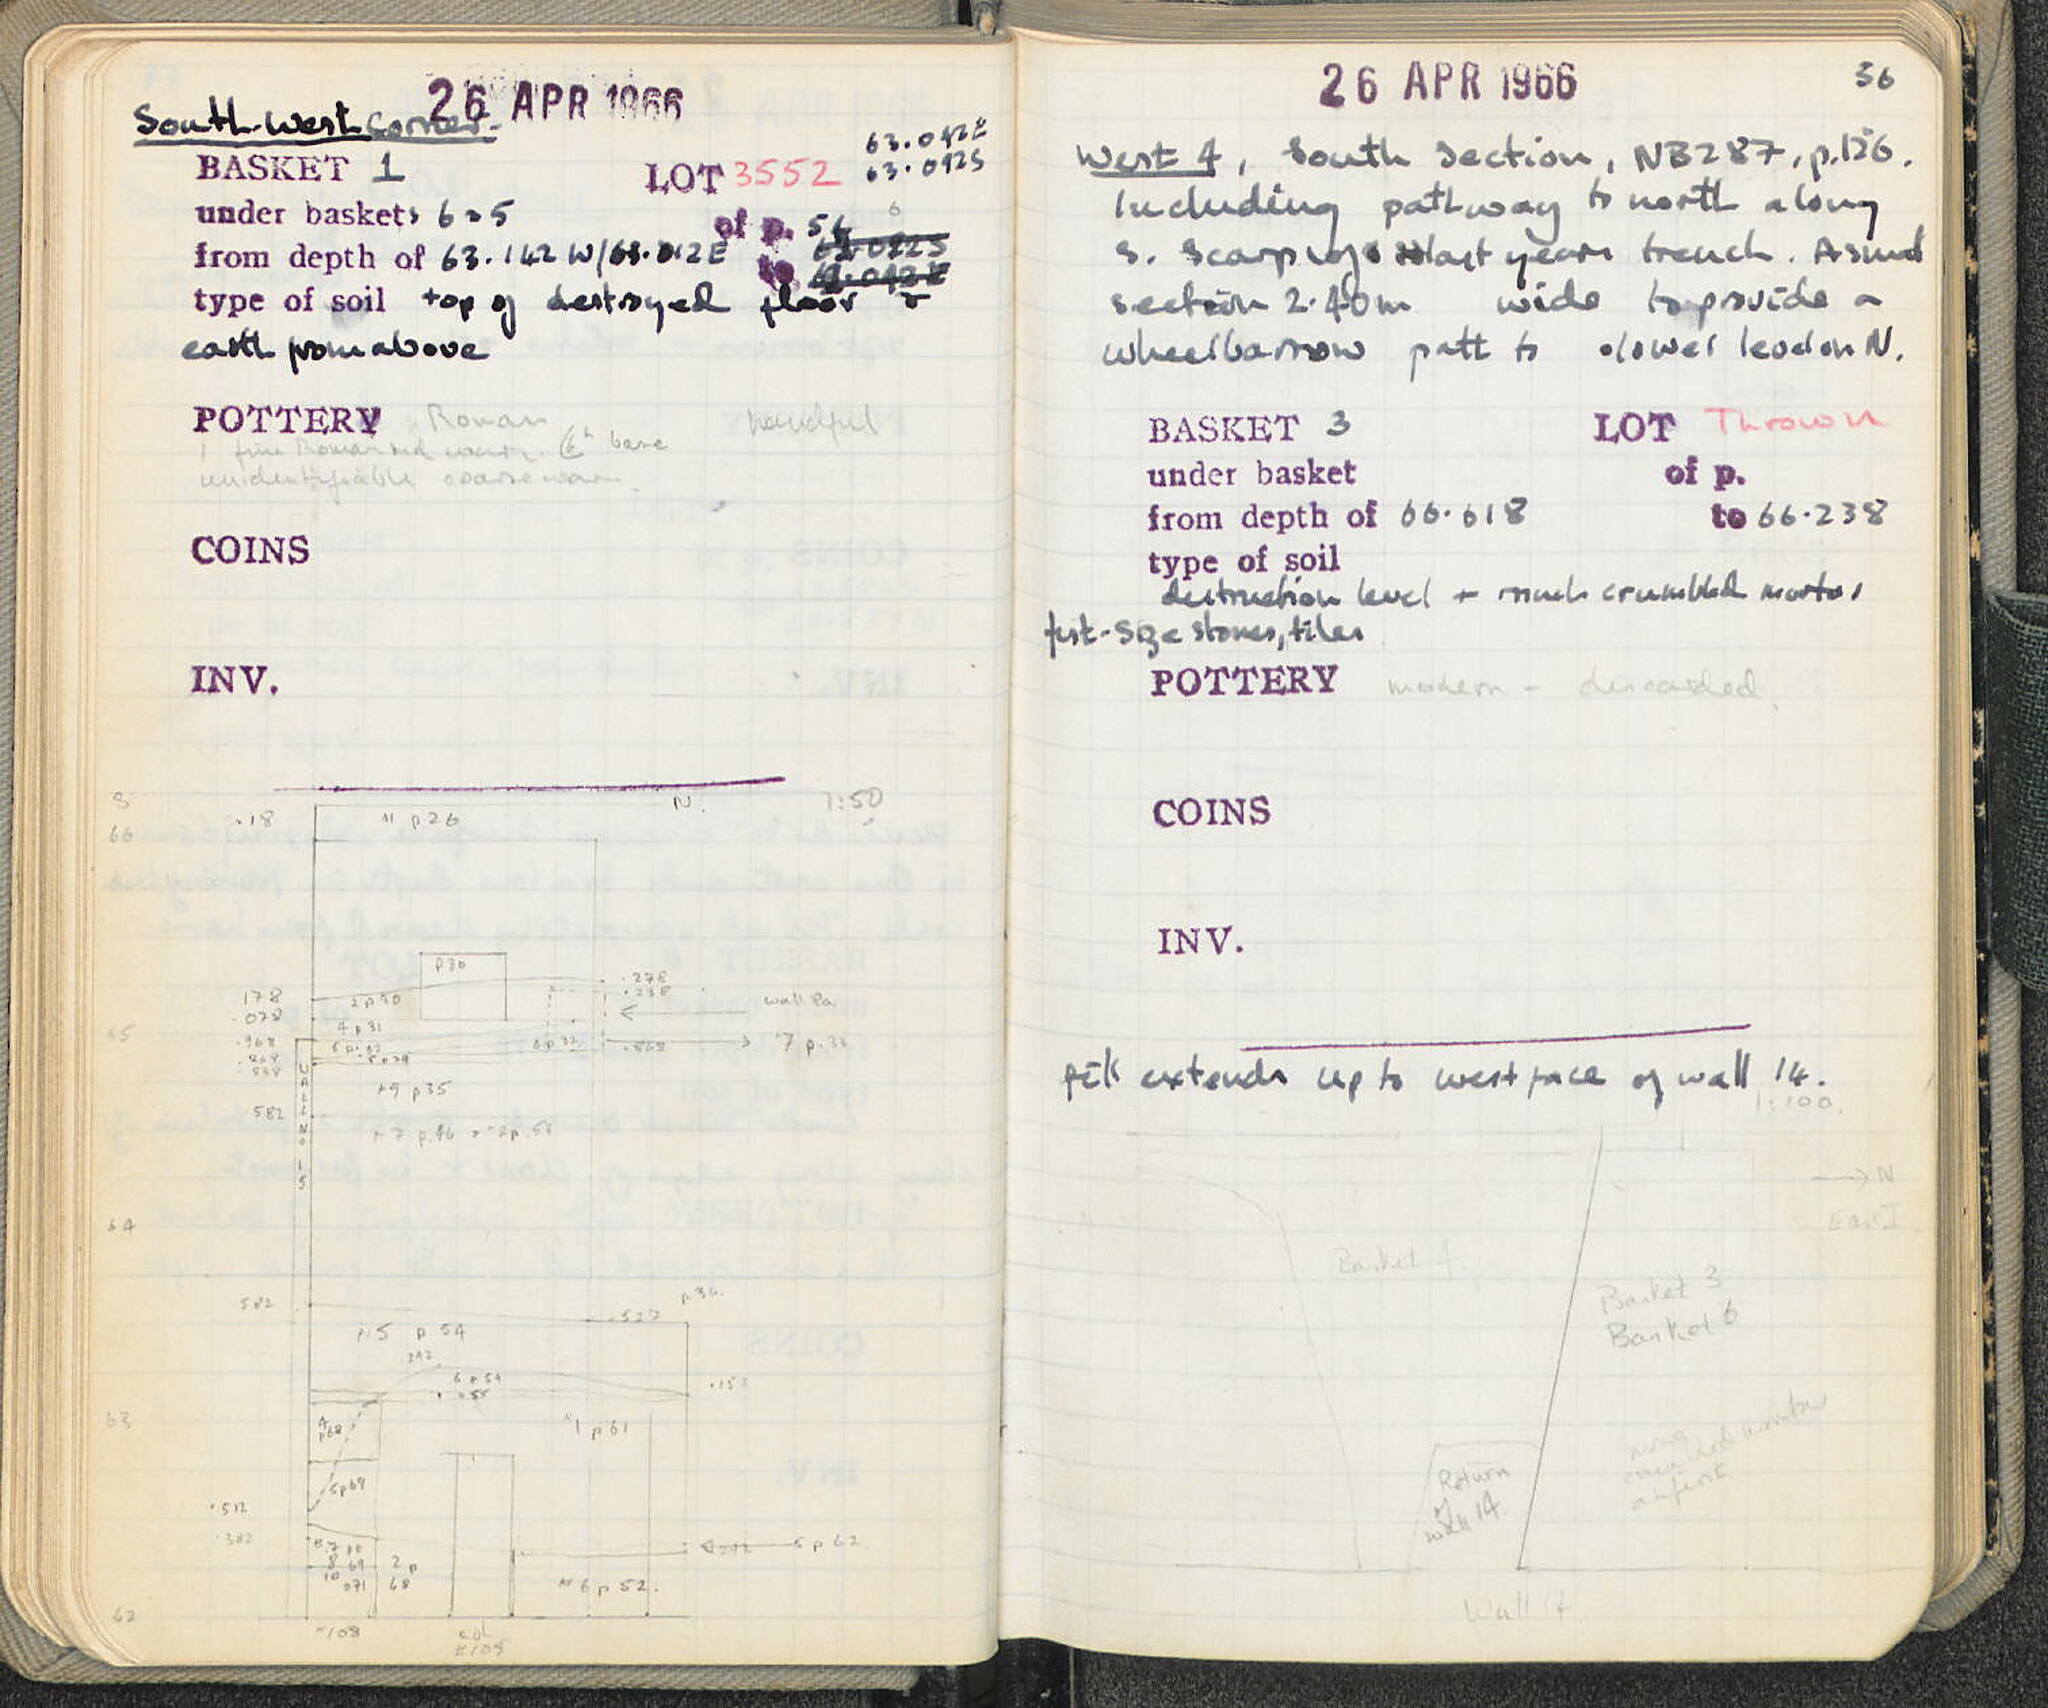 26 APR 1966
South-West Corner.
63.042E
63.092S
BASKET 1 LOT 3552
under baskets 6 5 of p. 54
from depth of 63.142 W/63.012E to
type of soil top of destroyed floor +
earth from above
POTTERY Roman handful
1 fine Roman red ware base
unidentifiable coarse ware.
COINS
INV.
1:50
S N.
66 .18 p 26
p30
.278
.238
178 2 p 30
.078
wall
4 p 31
65
.968
.868 7 p.
WALL NO 15
9 p 35
582
7 p.46
64
582 .527 p 36.
5 p 54
242
6 p 54
63
1 p 61
5 p 69
.512
.382
5 p 62
6 p 52.
2 p 68
62
108
26 APR 1966
36
West 4, South Section, NB287, p.126.
Including pathway to north along
S. Scarp of last years trench. A small
section 2.40m wide to provide a
wheelbarrow path to lower level on N.
BASKET 3 LOT Thrown
under basket of p.
from depth of 66.618 to 66.238
type of soil
destruction level + much crumbled mortar
fist-size stones, tiles
POTTERY modern - discarded.
COINS
INV.
pit extends up to west face of wall 14.
1:100.
N
East
Basket 4
Basket 3
Basket 6
Return
of
wall 14.
crumbled mortar
Wall 14.